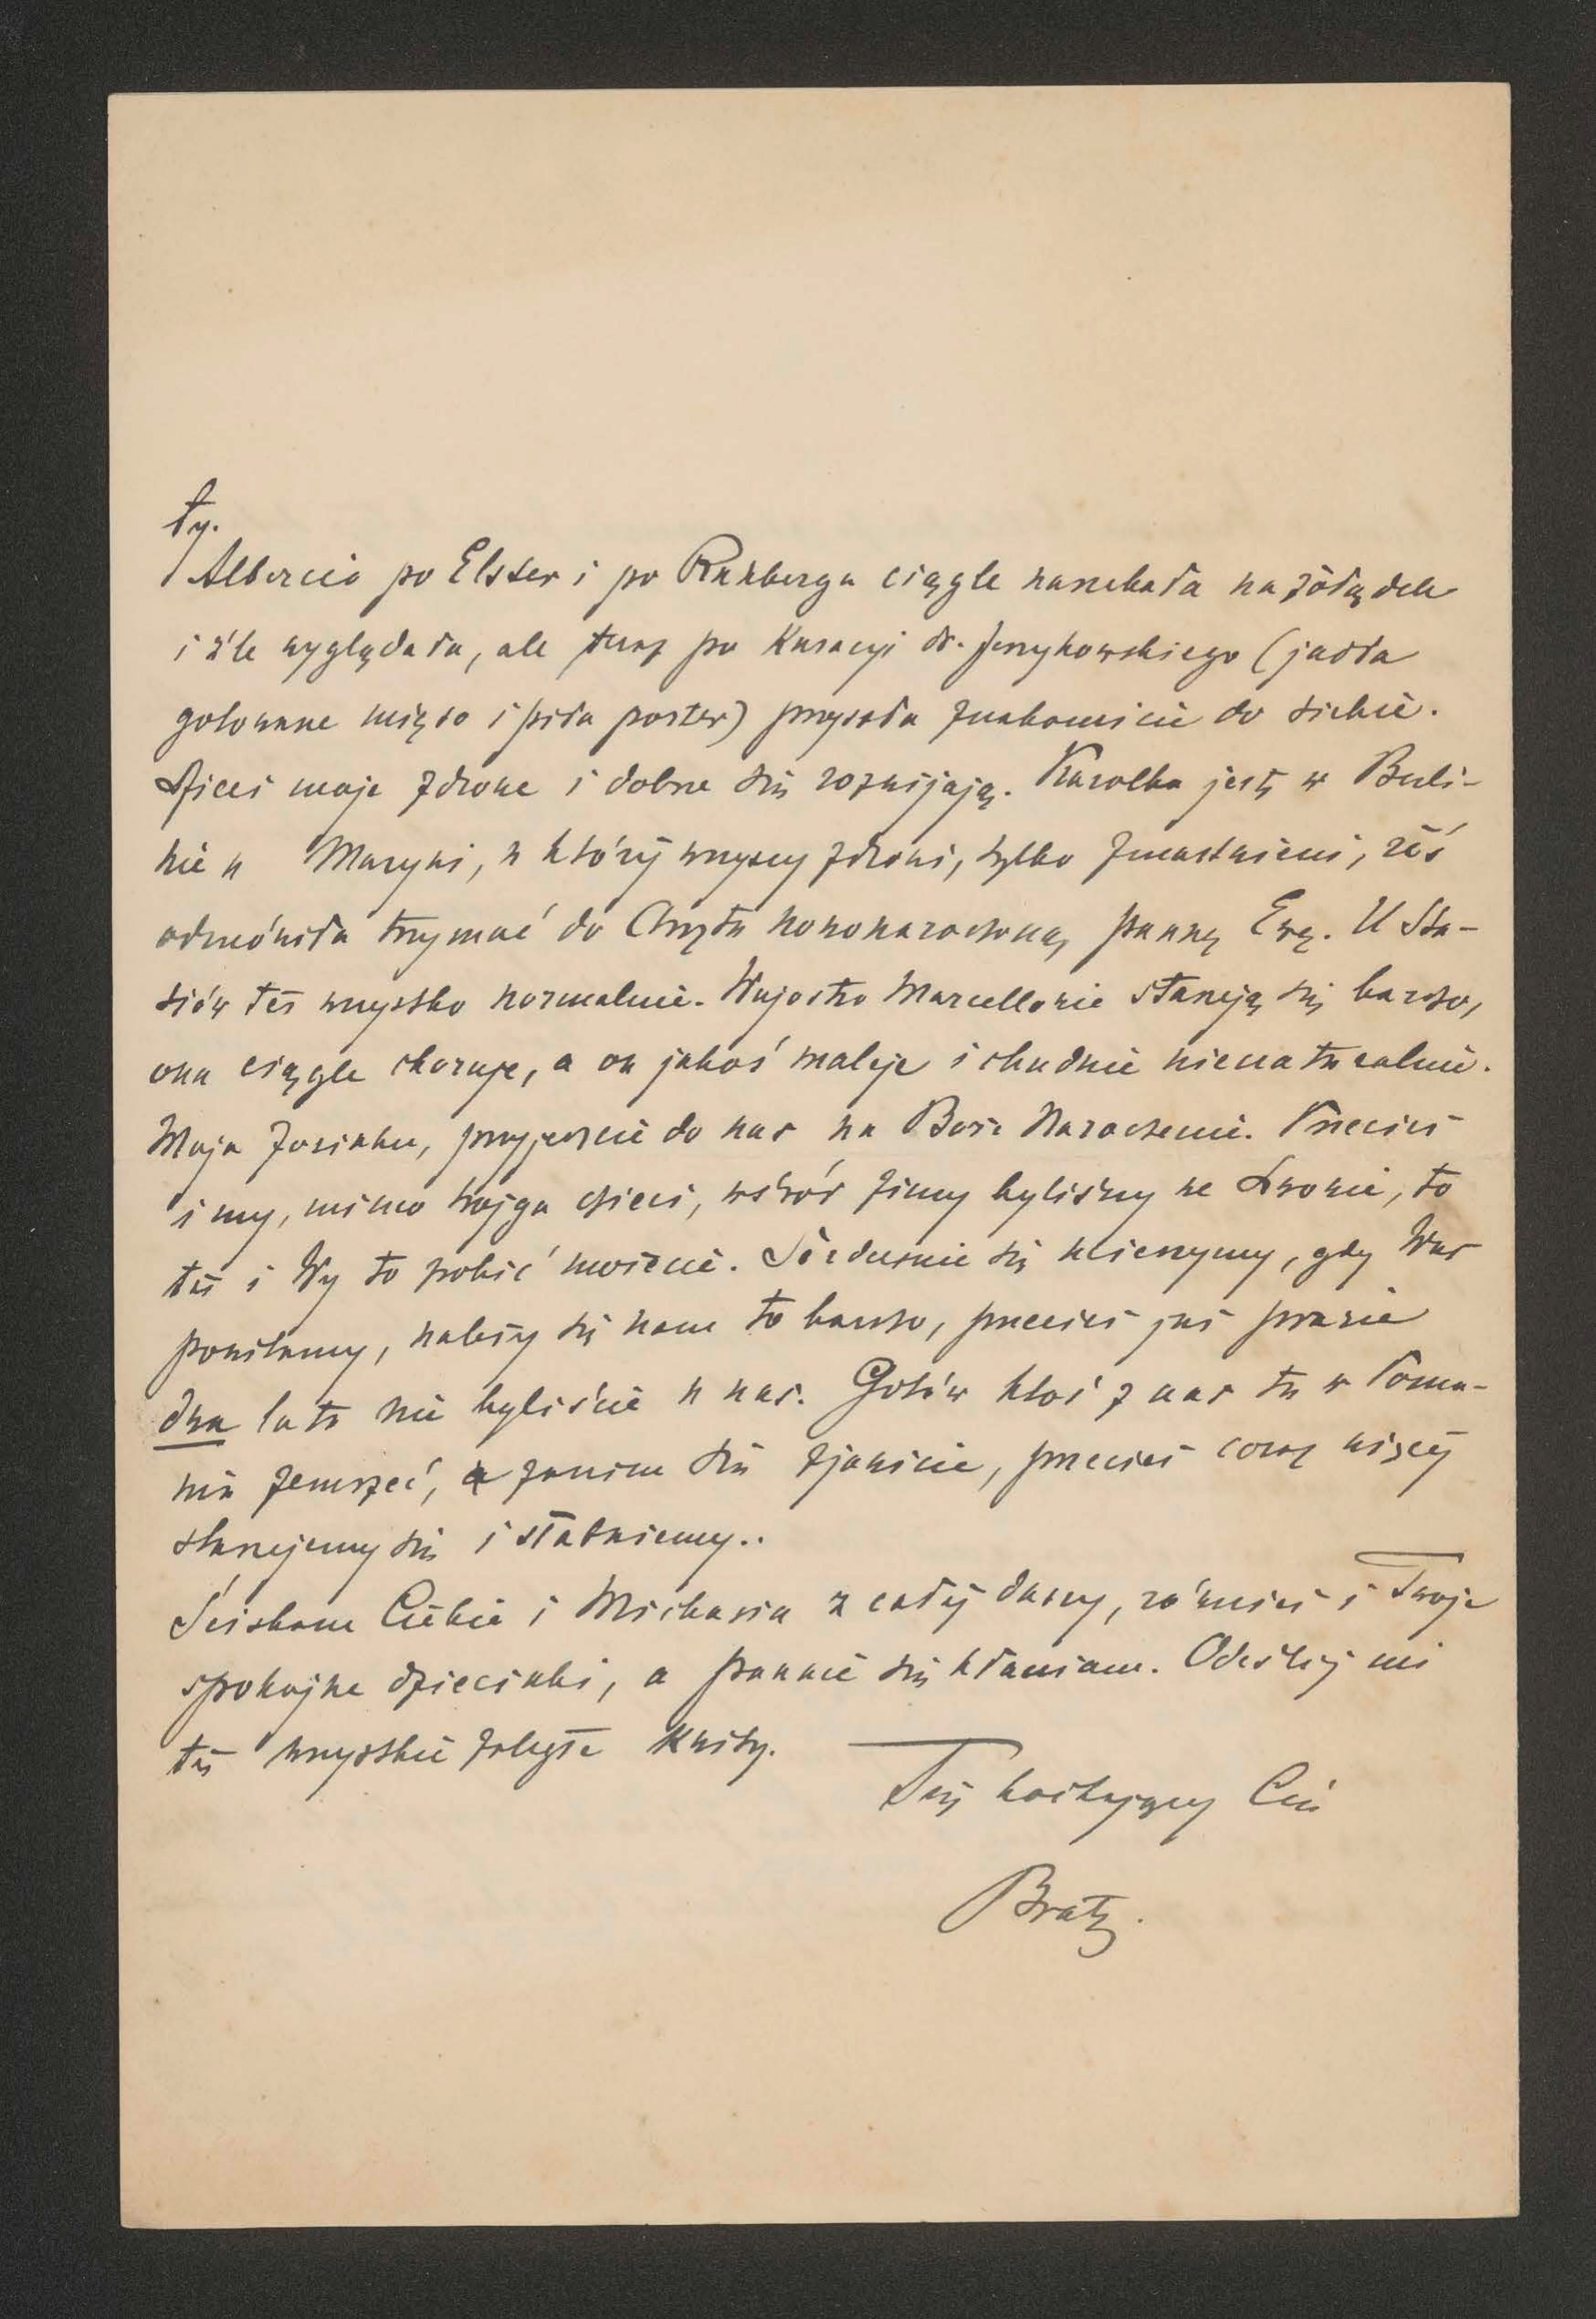 ty.
Albercia po Elster i po Runberga ciągle narzekała na żołądek
i źle wyglądała, ale teraz po kuracyi dr. Jerzykowskiego (jadła
gotowane mięso i piła porter) przyszła znakomicie do siebie.
Dzieci moje zdrowe i dobrze się rozwijają. Karolka jest w Berli-
nie u Maryni, u któréj wszyscy zdrowi, tylko zmartwieni, żeś
odmówiła trzymać do Chrztu nowonarodzoną pannę Ewę. U Sta-
siów też wszystko normalnie. Wujostwo Marcellowie starzeją się bardzo,
ona ciągle choruje, a on jakoś maleje i chudnie nienaturalnie.
Moja Zosieńku, przyjedźcie do nas na Boże Narodzenie. Przecież
i my, mimo trojga dzieci, wśród zimy byliśmy we Lwowie, to
też i Wy to zrobić możecie. Serdecznie się ucieszymy, gdy Was
powitamy, należy się nam to bardzo, przecież już prawie
dwa lata nie byliście u nas. Gotów ktoś z nas tu w Pozna-
niu zemrzeć, zanim się zjawicie, przecież coraz więcéj
starzejemy się i słabniemy..
Ściskam Ciebie i Michasia z całéj duszy, również i Twoje
spokojne dziecinki, a pannie się kłaniam. Odeślij mi
też wszystkie zaległe kwity.
Twój kochający Cię
Brat.